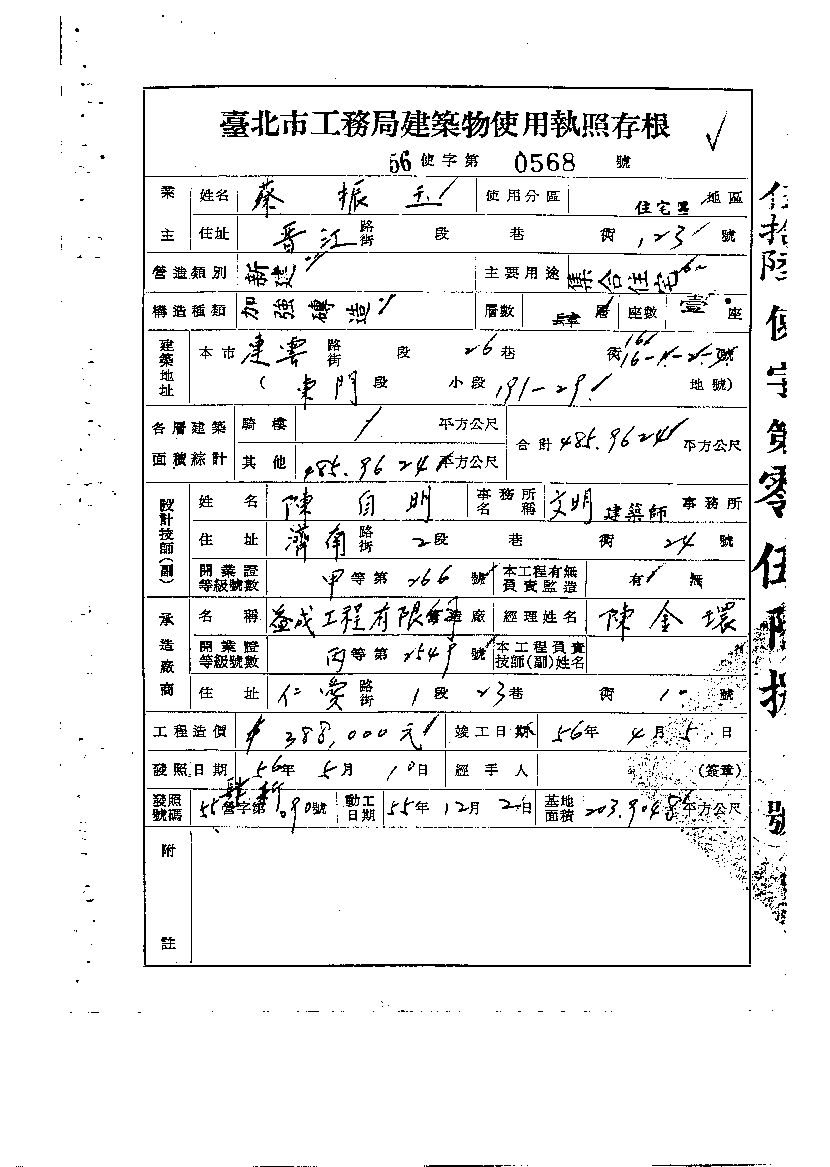 臺北市工務局建築物使用執照存根
56 使字第 0568 號
業主 姓名 蔡振玉 使用分區 住宅區 地區
住址 晋江路街 段 巷 衖 123 號
營造類別 新建 主要用途 集合住宅
構造種類 加強磚造 層數 肆層 座數 壹座
建築地址 本市 連雲路街 段 26巷 衖
(東門段 小段 191-29 地號)
各層建築面積綜計 騎樓 / 平方公尺 合計 485.9624 平方公尺
其他 485.9624 平方公尺
設計技師(副) 姓名 陳自明 事務所名稱 文明建築師事務所
住址 濟南路街 2段 巷 衖 24號
開業證等級號數 甲等第266號 本工程有無負責監造 有 無
承造廠商 名稱 益成工程有限 營造廠 經理姓名 陳金環
開業證等級號數 丙等第2549號 本工程負責技師(副)姓名
住址 仁愛路街 1段 23巷 衖 號
工程造價 388,000元 竣工日期 56年4月5日
發照日期 56年5月10日 經手人 (簽章)
發照號碼 55營字第 090號 動工日期 55年12月2日 基地面積 203.9048平方公尺
附註
伍拾陸使字第零伍陸 號